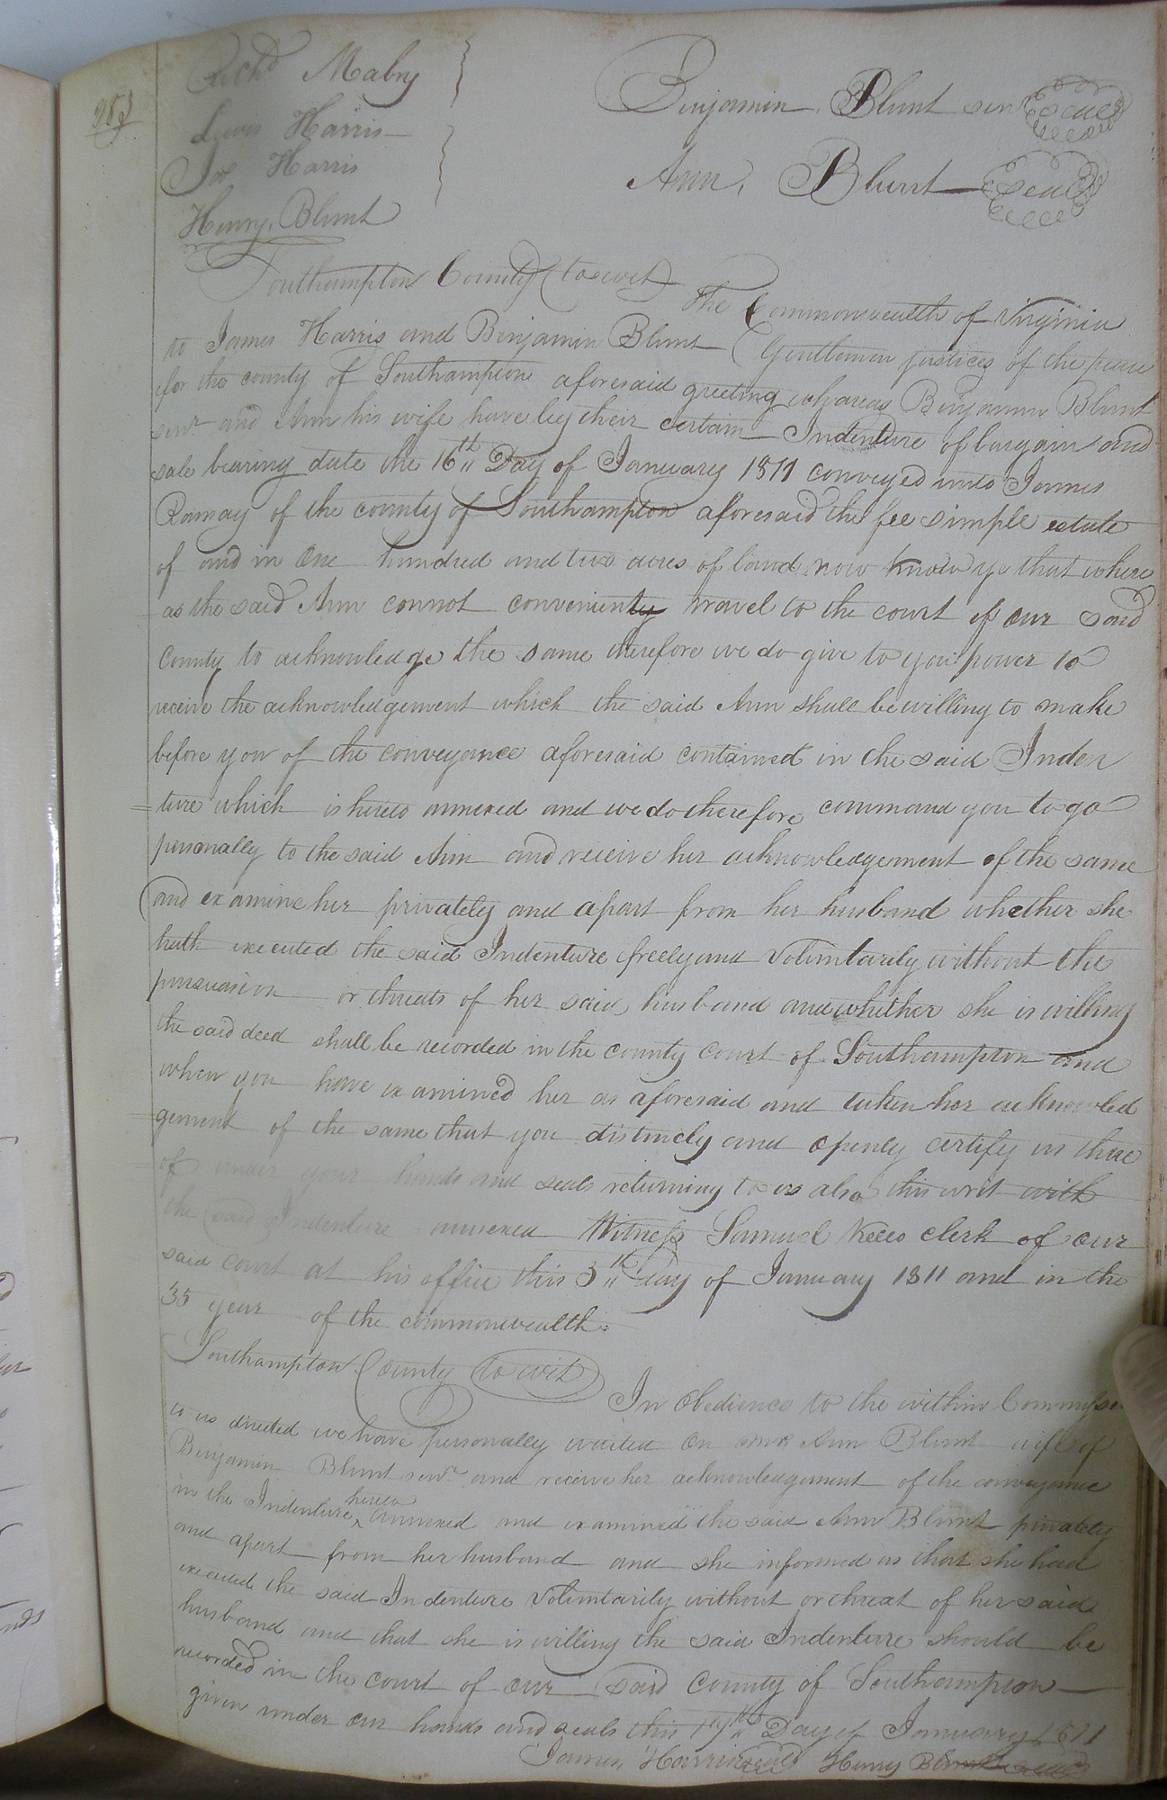 Rich<sup>d</sup> Mabry
Benjamin Blunt sen<sup>r</sup> Seal
Lewis Harris
Jos Harris
Ann, Blunt Seal
Henry, Blunt
Southampton County (to wit)
The Commonwealth of Virginia
to James Harris and Benjamin Blunt (Gentlemen justices of the peace
for the county of Southampton aforesaid greeting whareas Benjamin Blunt
sen<sup>r</sup> and Ann his wife have by their certain Indenture of bargain and
sale bearing date the 16<sup>th</sup> Day of January 1811 conveyed unto James
Ramay of the county of Southampton aforesaid the fee simple estate
of and in One hundred and two acres of land now know ye that where
as the said Ann connot conveniently travel to the court of our said
County to acknowledge the same therefore we do give to you power to
receive the acknowledgement which the said Ann shall be willing to make
before you of the conveyance aforesaid contained in the said Inden
ture which is hereto annexed and we do therefore command you to go
personally to the said Ann and receive her acknowledgement of the same
and examine her privately and apart from her husband whether she
hath executed the said Indenture freely and Voluntarily without the
persuasion or threats of her said husband and whether she is willing
the said deed shall be recorded in the county court of Southampton and
when you have examined her as aforesaid and taken her acknowled
gement of the same that you distincly and openly certify us there
of under your hands and seals returning to us also this writ with
the said Indenture annexed Witness Samuel Kello clerk of our
said court at his office this day of January 1811 and in the
35 year of the commonwealth.
Southampton County to wit
In Obedience to the within Commissi
to us directed we have personally waited on Ann Blunt wife of
Benjamin Blunt sen<sup>r</sup> and receive her acknowledgement of the conveyance
in the Indenture hereto annexed and examined the said Ann Blunt privately
and apart from her husband and she informed us that she had
executed the said Indenture Voluntarily without or threat of her said
husband and that she is willing the said Indenture should be
recorded in the court of our said County of Southampton
given under our hands and seals this Day of January 1811
James, Harris seal Henry Blunt seal